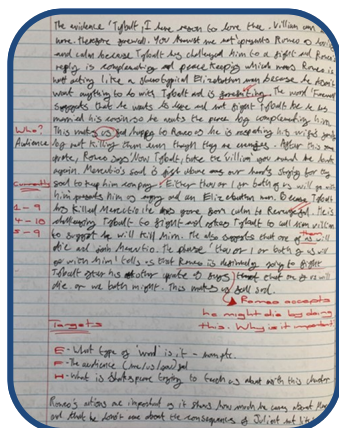 The evidence 'Tybalt, I have reason to love thee. Villian am I
none. Therefore farewell. You know me not presents Romeo as loving
and calm because Tybalt has challenged him to a fight and Romeo's
reply is complementing and peace keeping which means Romeo is
not acting like a stereotypical Elizabethan man because he doesn't
want anything to do with Tybalt and is The word 'Farewell'
suggests that he wants to leave and not fight Tybalt he has
married his cousin so he wants the peace by complementing him.
Who?
Audience
This makes us feel happy to Romeo as he is respecting his wife's family
by not killing them even though they are enemies. After this
quote, Romeo says 'Now Tybalt, take the Villian you gave me late
again. Mercutio's soul is just above our heads staying for thy
soul to keep him company. Either thou or I or both of us will go with
him presents Romeo as angry and an Elizabethan man. Because Tybalt
Currently
1 - 9
4 - 10
5 - 9
has killed Mercutio he has gone from calm to Revengeful. He is
challenging Tybalt to fight and asking Tybalt to call him villian
to suggest he will kill him. He also suggests that one of them will
die and join Mercutio. The phase 'thou or I or both of us will
go with him' tells us that Romeo is definitely going to fight
Tybalt after his other quote of says that one of us will
die or we both might. This makes us feel sad.
Romeo accepts
he might die by doing
this. Why is it important
Targets
E - What type of 'word' is it - example.
F - The audience (me/us/you) feel
H - What is Shakespeare trying to teach us about with this character.
Romeo's actions are important as it shows how much he cares about
and that he don't care about the consequences of Juliet not